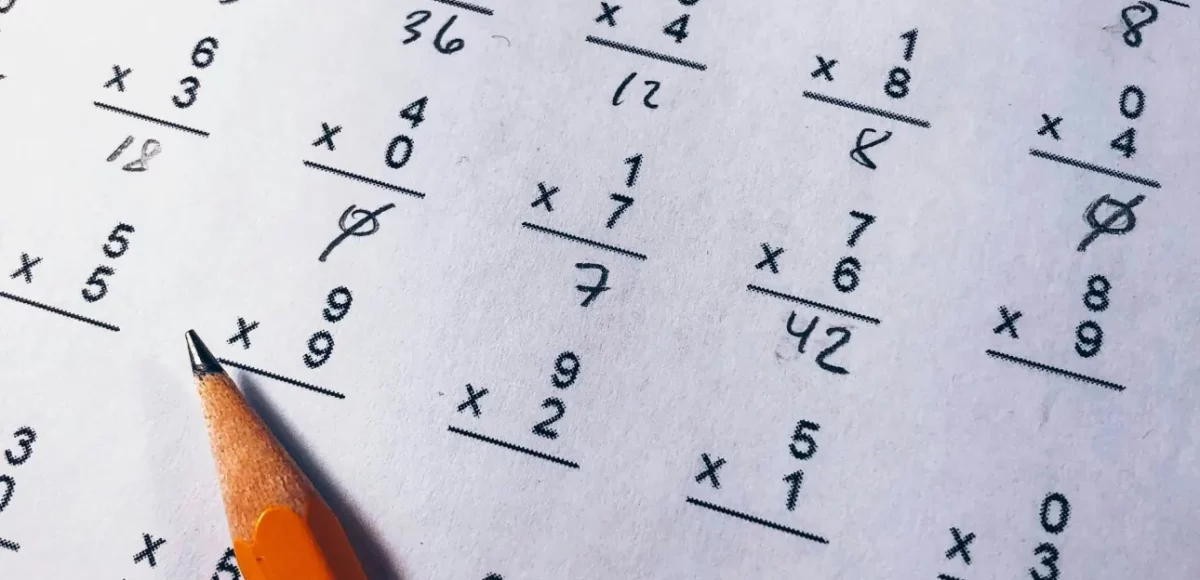 8
36
× 4
12
1
× 8
8
0
× 4
0
6
× 3
18
4
× 0
0
1
× 7
7
7
× 6
42
8
× 9
5
× 5
9
× 9
9
× 2
5
× 1
0
× 3
3
×